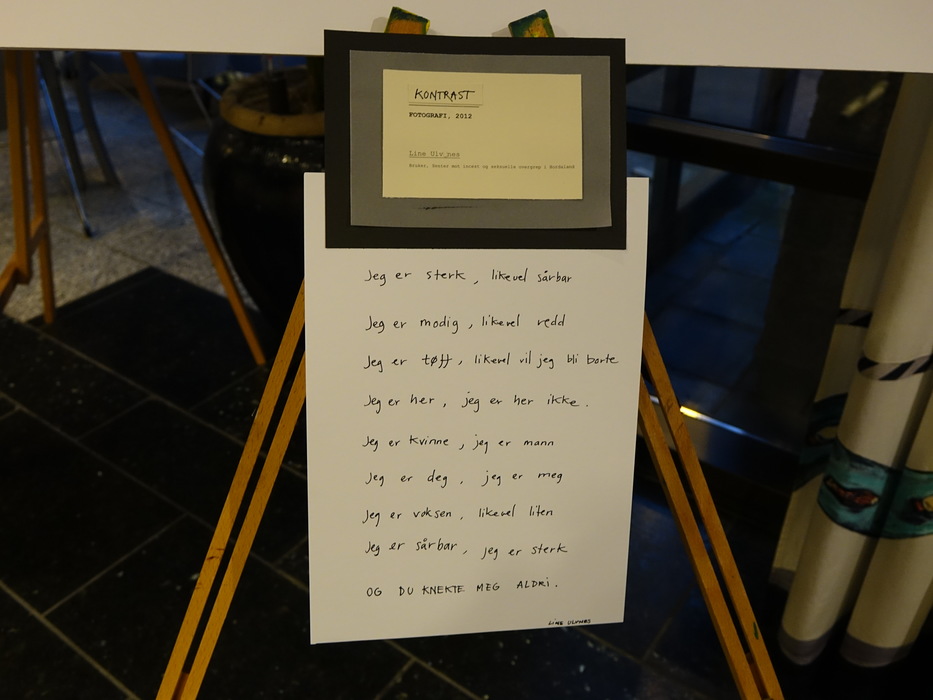 KONTRAST
FOTOGRAFI, 2012
Line Ulv nes
Bruker, Senter mot incest og seksuelle overgrep i Hordaland
Jeg er sterk, likevel sårbar
Jeg er modig, likevel redd
Jeg er tøff, likevel vil jeg bli borte
Jeg er her, jeg er her ikke.
Jeg er kvinne, jeg er mann
Jeg er deg, jeg er meg
Jeg er voksen, likevel liten
Jeg er sårbar, jeg er sterk
OG DU KNEKTE MEG ALDRI.
LINE ULVNES